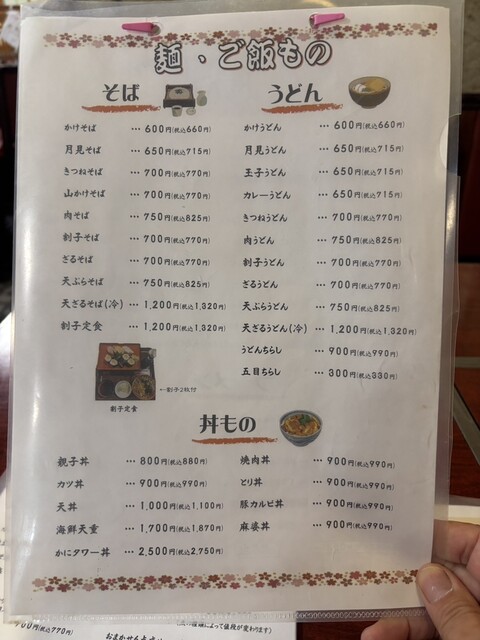 麺・ご飯もの
そば
かけそば … 600円(税込660円)
月見そば … 650円(税込715円)
きつねそば … 700円(税込770円)
山かけそば … 700円(税込770円)
肉そば … 750円(税込825円)
割子そば … 700円(税込770円)
ざるそば … 700円(税込770円)
天ぷらそば … 750円(税込825円)
天ざるそば(冷) … 1,200円(税込1,320円)
割子定食 … 1,200円(税込1,320円)
←割子2枚付
割子定食
うどん
かけうどん … 600円(税込660円)
月見うどん … 650円(税込715円)
玉子うどん … 650円(税込715円)
カレーうどん … 650円(税込715円)
きつねうどん … 700円(税込770円)
肉うどん … 750円(税込825円)
割子うどん … 700円(税込770円)
ざるうどん … 700円(税込770円)
天ぷらうどん … 750円(税込825円)
天ざるうどん(冷) … 1,200円(税込1,320円)
うどんちらし … 900円(税込990円)
五目ちらし … 300円(税込330円)
丼もの
親子丼 … 800円(税込880円)
カツ丼 … 900円(税込990円)
天丼 … 1,000円(税込1,100円)
海鮮天重 … 1,700円(税込1,870円)
かにタワー丼 … 2,500円(税込2,750円)
焼肉丼 … 900円(税込990円)
とり丼 … 900円(税込990円)
豚カルビ丼 … 900円(税込990円)
麻婆丼 … 900円(税込990円)
700円(税込770円)
によって値段が変わります)